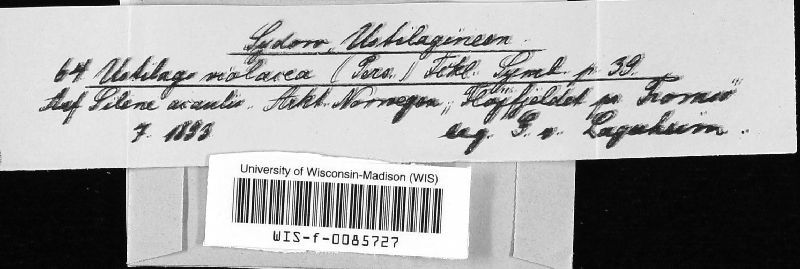 Sydow, Ustilagineen.
64 Ustilago violacea (Pers.) Fckl. Symb. p. 39.
Auf Silene acaulis. Arkt. Norwegen, "Höjfjeldet pr Tromsö"
7. 1893 leg. G. v. Lagerheim.
University of Wisconsin-Madison (WIS)
WIS-f-0085727